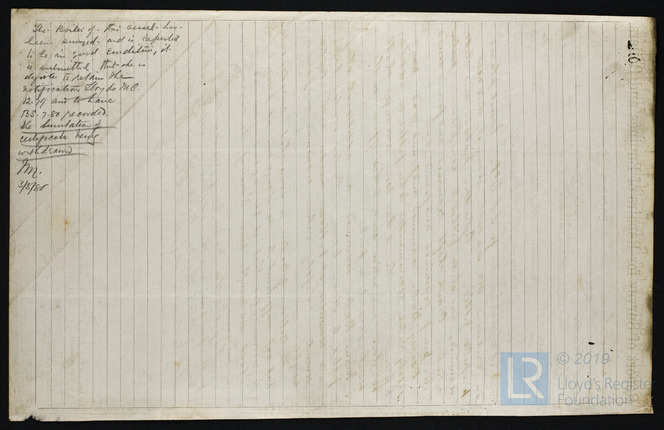 The Boiler of this vessel has
been surveyed and is reported
to be in good condition, it
is submitted that she is
eligible to retain the
notification Lloyds MC
12.79 and to have
BS. 7.80 recorded.
the limitation of
certificate being
withdrawn
3/8/80
© 2019
LR
Lloyd's Register
Foundation